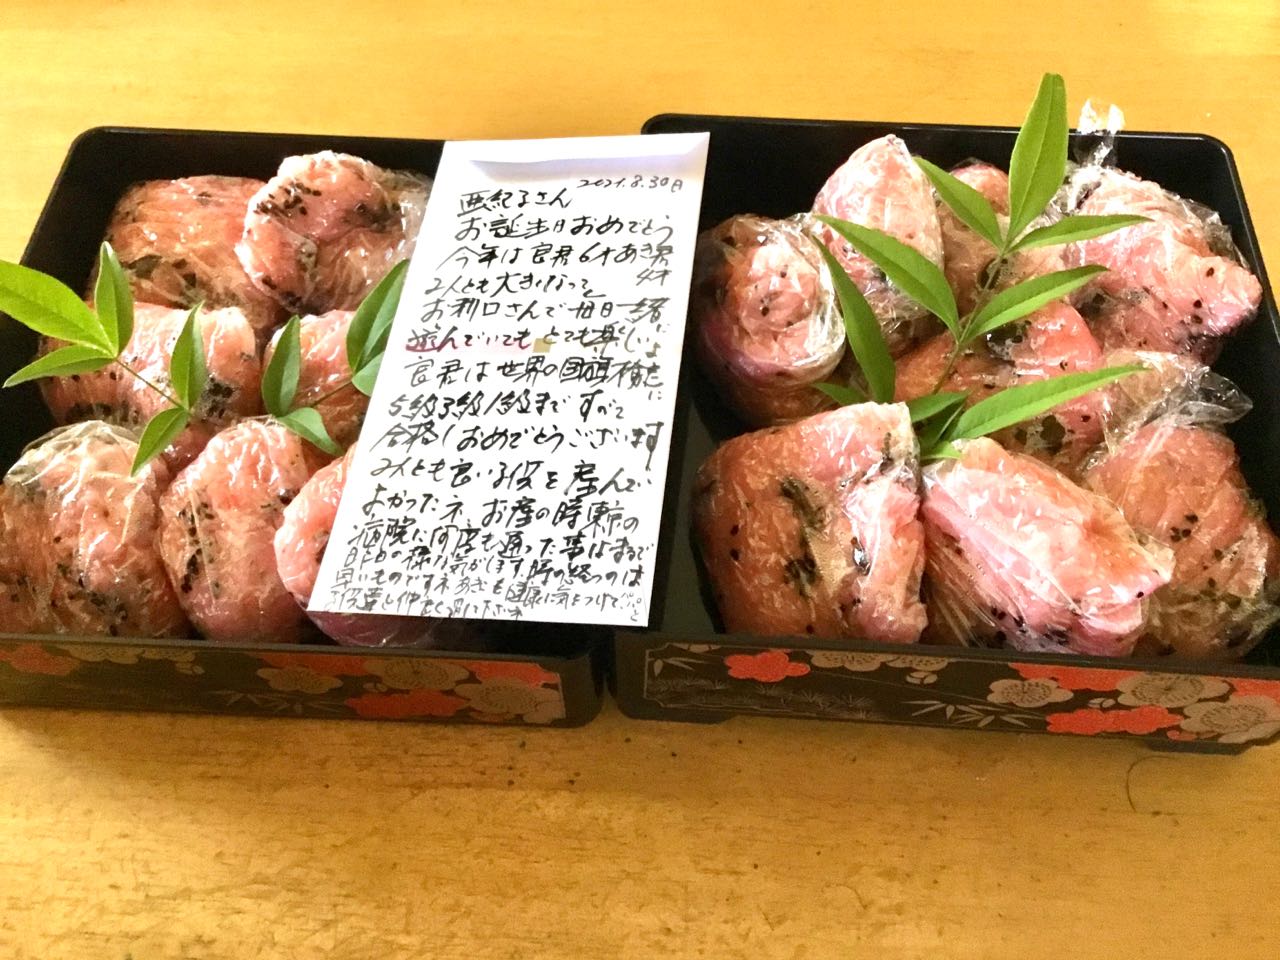 2021.8.30日
亜紀子さん
お誕生日おめでとう
今年は良君6才あき君
4才
2人とも大きくなって
お利口さんで毎日一緒に
遊んでいてもとても楽しいよ
良君は世界の国旗検定に
5級3級1級まですべて
合格しおめでとうございます
2人とも良い子供を産んで
よかったネ お産の時東京の
病院に何度も通った事はまるで
昨日の様な気がします時の経つのは
早いものですネ 健康に気をつけてパパと